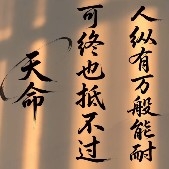 人纵有万般能耐
可终也抵不过
天命